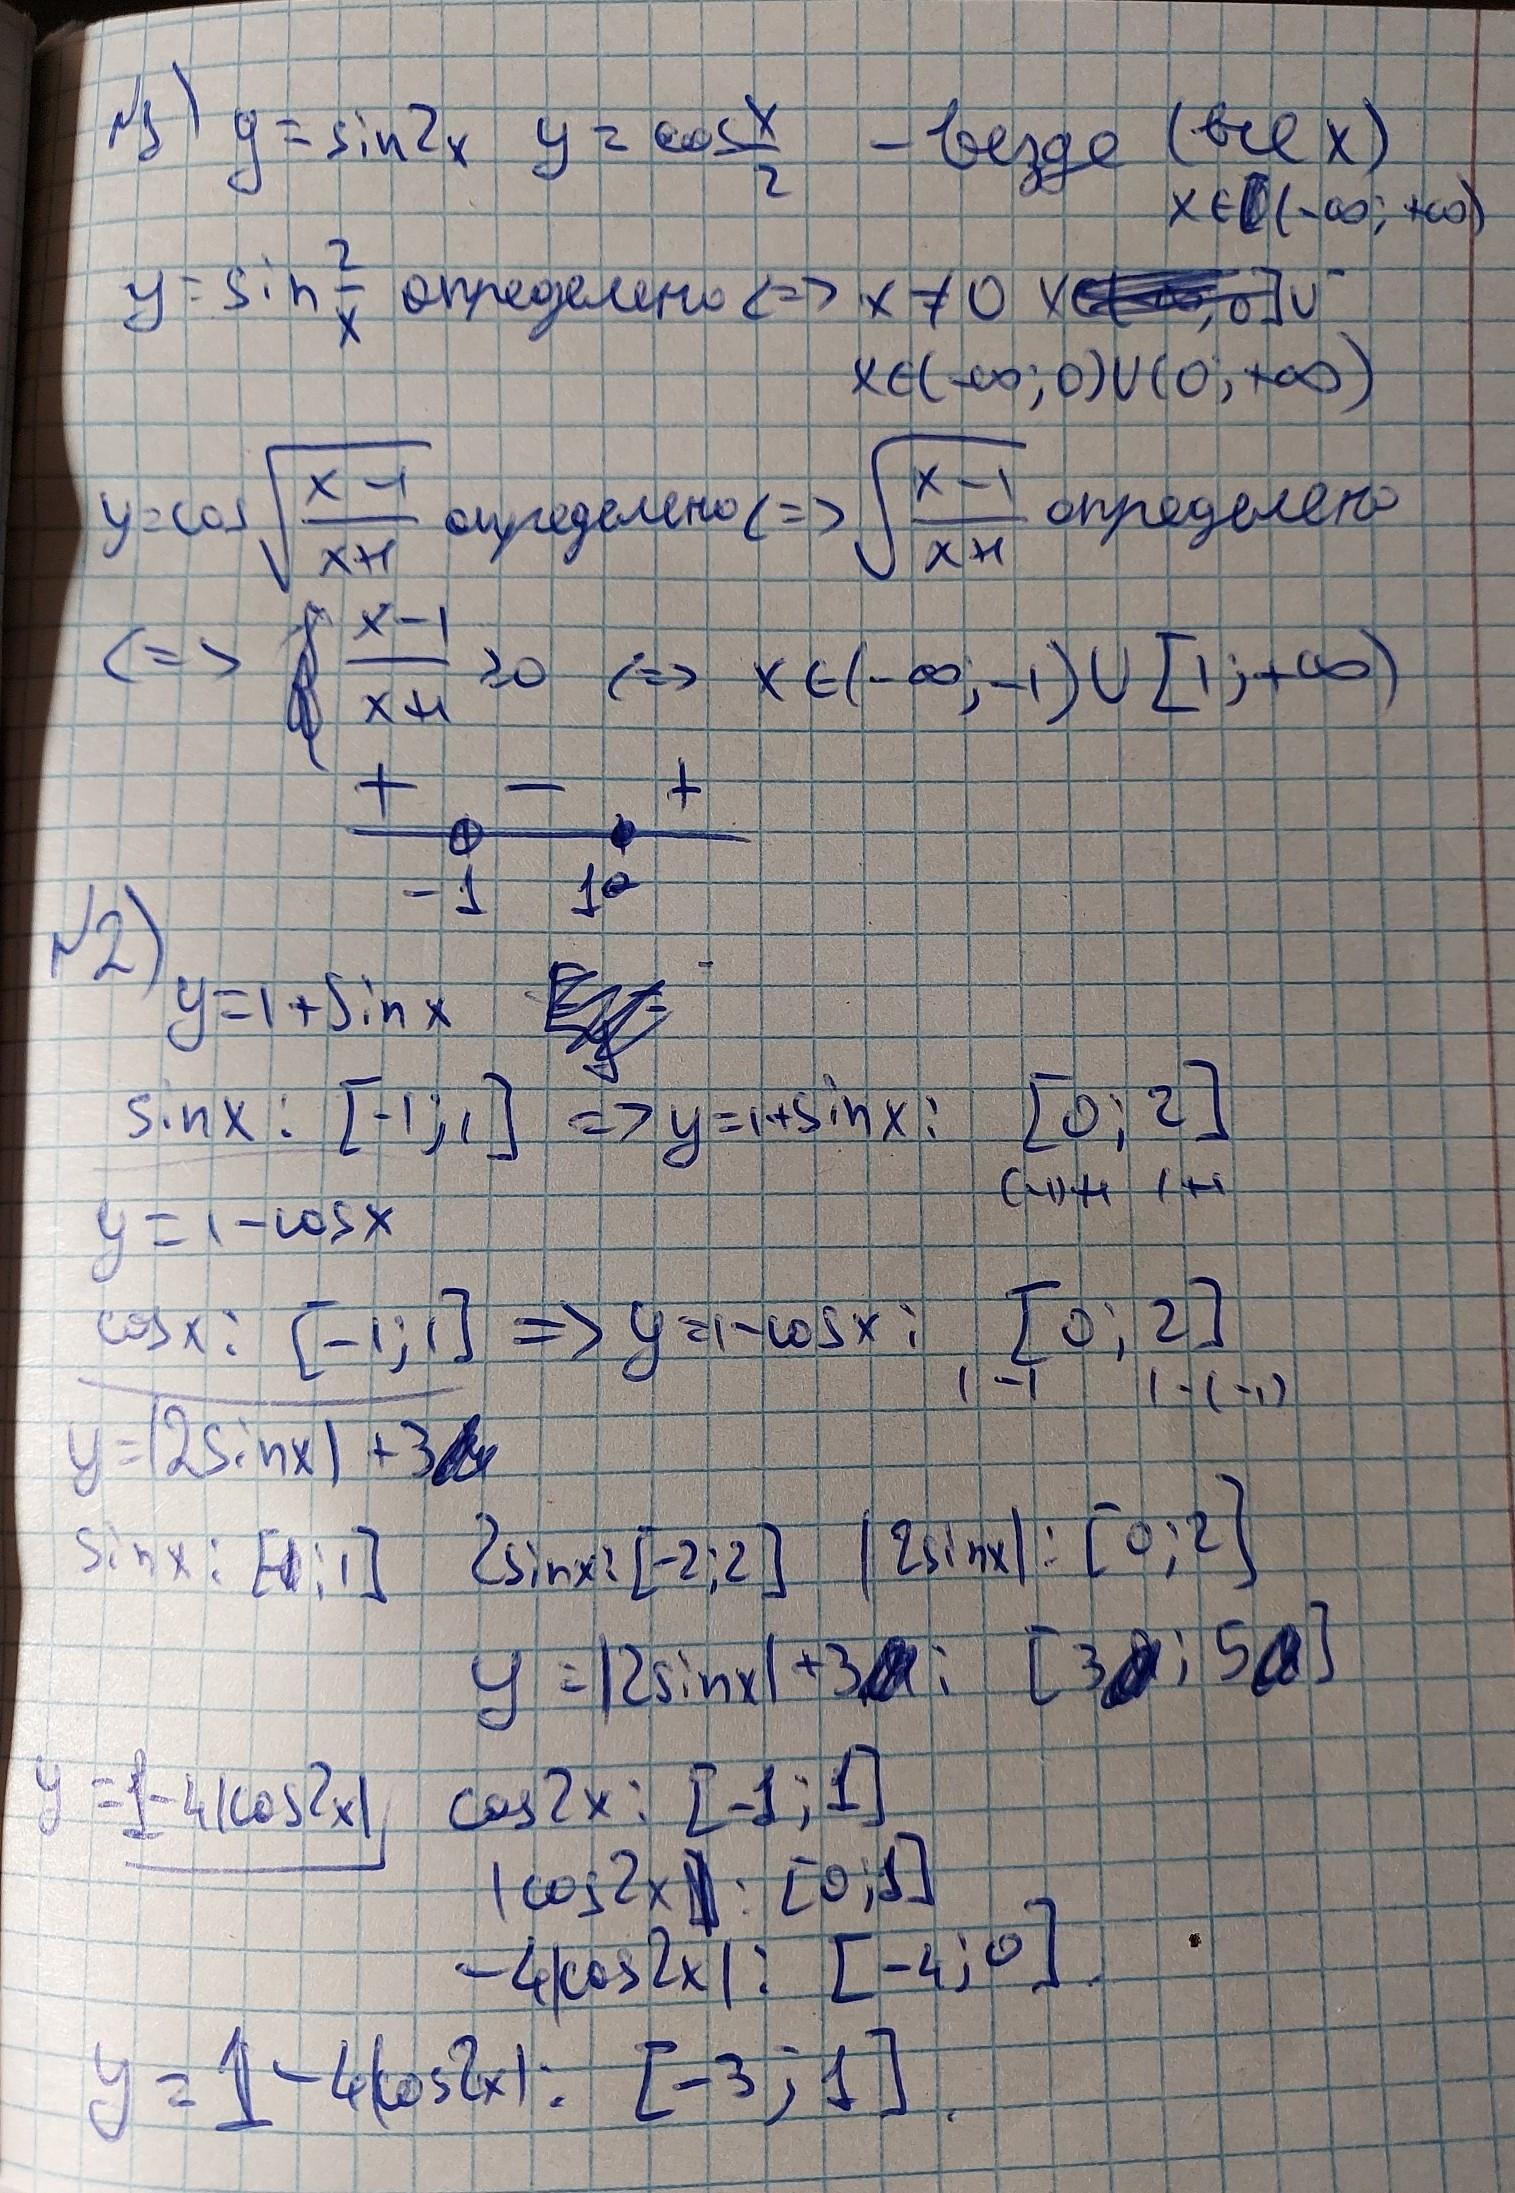 №1) y = sin2x y = cos x/2 - везде (все x)
x∈(-∞; +∞)
y = sin 2/x определено <=> x ≠ 0 x∈
x∈(-∞; 0)∪(0; +∞)
y = cos √((x-1)/(x+1)) определено <=> √((x-1)/(x+1)) определено
<=> (x-1)/(x+1) ≥ 0 <=> x∈(-∞; -1)∪[1; +∞)
+ - +
-1 1
№2)
y = 1 + sin x
sinx: [-1; 1] => y = 1 + sinx: [0; 2]
(-1)+1 1+1
y = 1 - cosx
cosx: [-1; 1] => y = 1 - cosx: [0; 2]
1-1 1-(-1)
y = |2sinx| + 3
sinx: [-1; 1] 2sinx: [-2; 2] |2sinx|: [0; 2]
y = |2sinx| + 3: [3; 5]
y = 1 - 4|cos2x| cos2x: [-1; 1]
|cos2x|: [0; 1]
-4|cos2x|: [-4; 0].
y = 1 - 4|cos2x|: [-3; 1].